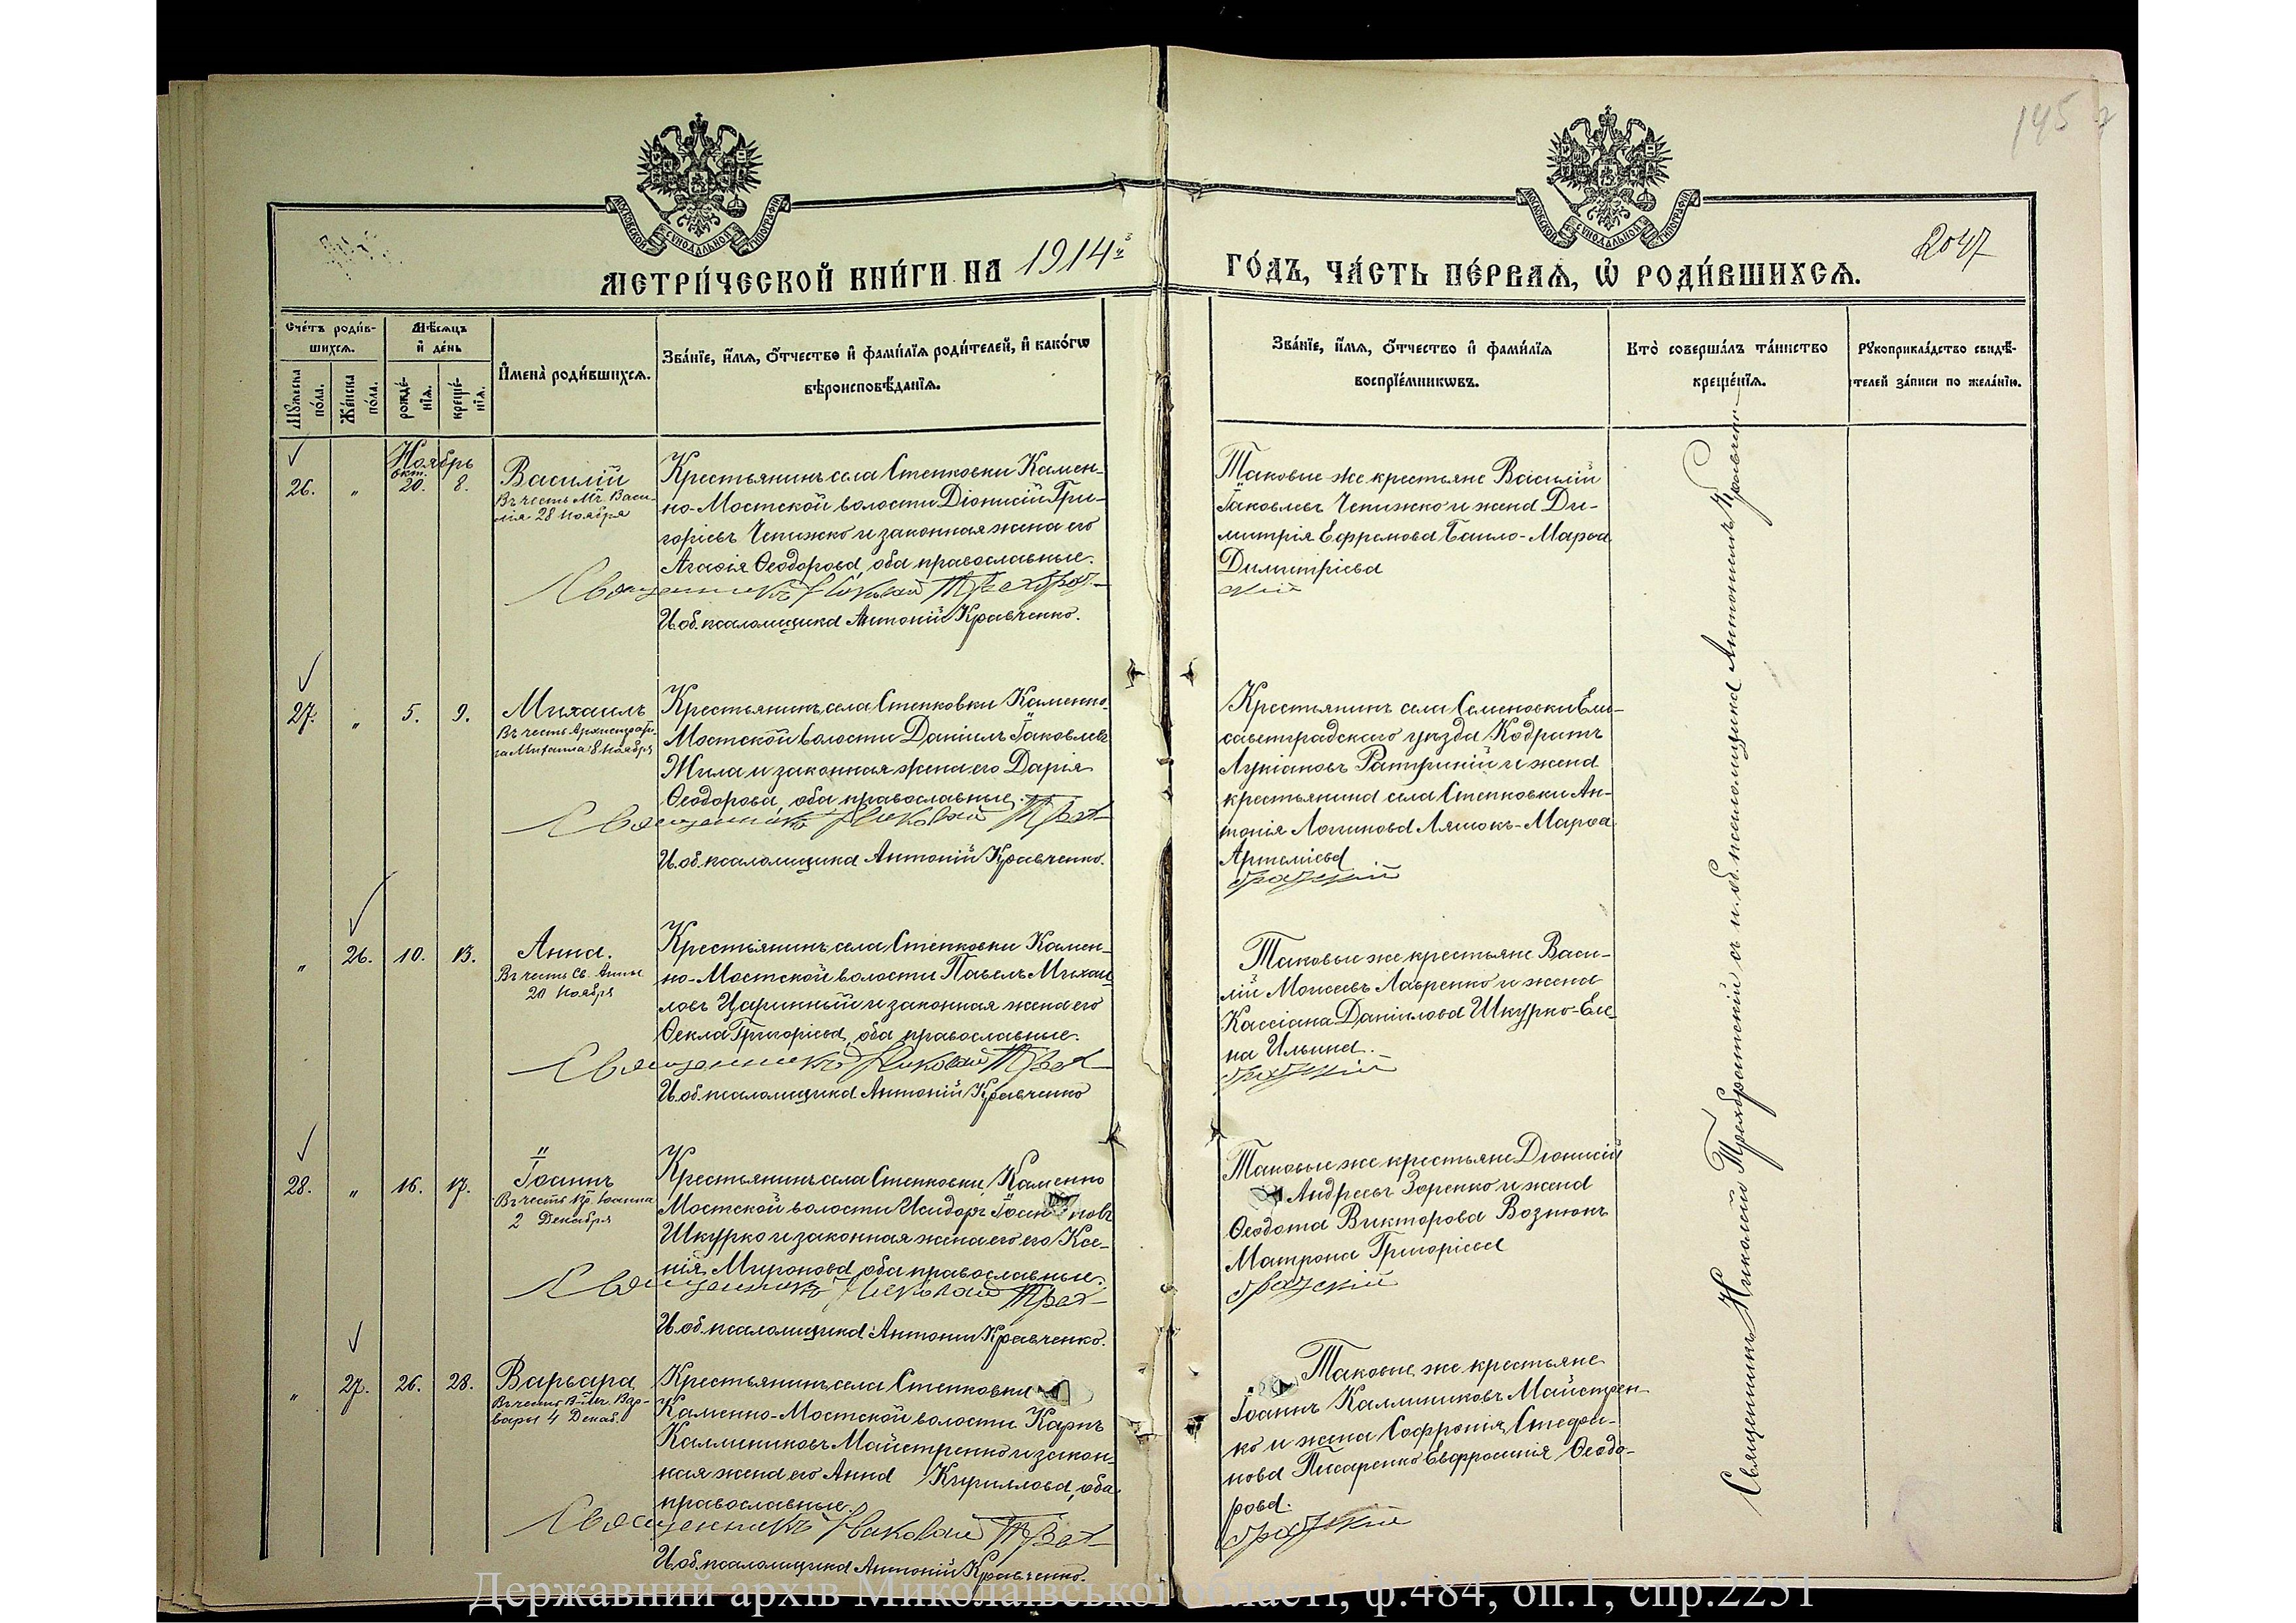 145
МОСКОВСКОЙ СѴНОДАЛЬНОЙ ТИПОГРАФІИ
МОСКОВСКОЙ СѴНОДАЛЬНОЙ ТИПОГРАФІИ
МЕТРИ́ЧЕСКОЙ КНИ́ГИ НА 1914й
ГО́ДЪ, ЧА́СТЬ ПЕ́РВАѦ, Ѽ РОДИ́ВШИХСѦ.
2047
Сче́тъ роди́в-
шихсѧ.
Мꙋ́жеска по́ла.
Же́нска по́ла.
Мѣ́сѧцъ
и҆ де́нь
рожде́-
нїѧ.
креще́-
нїѧ.
И҆мена̀ роди́вшихсѧ.
Зва́нїе, и҆́мѧ, о҆́тчество и҆ фами́лїѧ роди́телей, и҆ како́гѡ
вѣроисповѣ́данїѧ.
Зва́нїе, и҆́мѧ, о҆́тчество и҆ фами́лїѧ
воспрїе́мникѡвъ.
Кто̀ соверша́лъ та́инство
креще́нїѧ.
Рꙋкоприкла́дство свидѣ́-
телей за́писи по жела́нїю.
Ноябрь
26. " окт. 20. 8.
Василій
Въ честь Мч. Васи-
лія 28 Ноября
Крестьянинъ села Степковки Камен-
но-Мостской волости Діонисій Гри-
горіевъ Чепижко и законная жена его
Агаѳія Ѳеодорова, оба православные.
Священникъ Николай Трехбрат-
И. об. псаломщика Антоній Кравченко.
Таковые же крестьяне Василій
Іаковлевъ Чепижко и жена Ди-
митрія Ефремова Баило-Марѳа
Димитріева
скій
27. " 5. 9.
Михаилъ
Въ честь Архистрати-
га Михаила 8 Ноября
Крестьянинъ села Степковки Каменно-
Мостской волости Даніилъ Іаковлевъ
Жила и законная жена его Дарія
Ѳеодорова, оба православные.
Священникъ Николай Трех-
И. об. псаломщика Антоній Кравченко.
Крестьянинъ села Семеновки Ели-
саветградскаго уѣзда Кодратъ
Лукіановъ и жена
крестьянина села Степковки Ан-
тонія Логинова Ляшокъ-Марѳа
Артеміева
братскій
" 26. 10. 13.
Анна.
Въ честь Св. Анны
20 Ноября
Крестьянинъ села Степковки Камен-
но-Мостской волости Павелъ Михаи-
ловъ Царинный и законная жена его
Ѳекла Григоріева, оба православные.
Священникъ Николай Трех-
И. об. псаломщика Антоній Кравченко
Таковые же крестьяне Васи-
лій Моисеевъ Лавренко и жена
Кассіана Даніилова Шкурко-Еле-
на Ильина.
братскій
28. " 16. 17.
Іоаннъ
Въ честь Пр. Іоанна
2 Декабря
Крестьянинъ села Степковки, Каменно
Мостской волости Исидоръ Іоанновъ
Шкурко и законная жена его его Ксе-
нія Миронова, оба православные.
Священникъ Николай Трех-
И. об. псаломщика Антоній Кравченко.
Таковые же крестьяне Діонисій
Андреевъ Зоренко и жена
Ѳеодота Викторова Вознюкъ
Матрона Григоріева
братскій
" 27. 26. 28.
Варвара
Въ честь В-Мч. Вар-
вары 4 Декаб.
Крестьянинъ села Степковки
Каменно-Мостской волости Карпъ
Каллиниковъ Майстренко и закон-
ная жена его Анна Кириллова, оба
православные.
Священникъ Николай Трех-
И. об. псаломщика Антоній Кравченко.
Таковые же крестьяне
Іоаннъ Каллиниковъ Майстрен-
ко и жена Софронія Стефа-
нова Писаренко Евфросинія Ѳеодо-
рова.
братскій
Священникъ Николай Трехбратскій съ и. об. псаломщика Антоніемъ Кравченко
Державний архів Миколаївської області, ф.484, оп.1, спр.2251